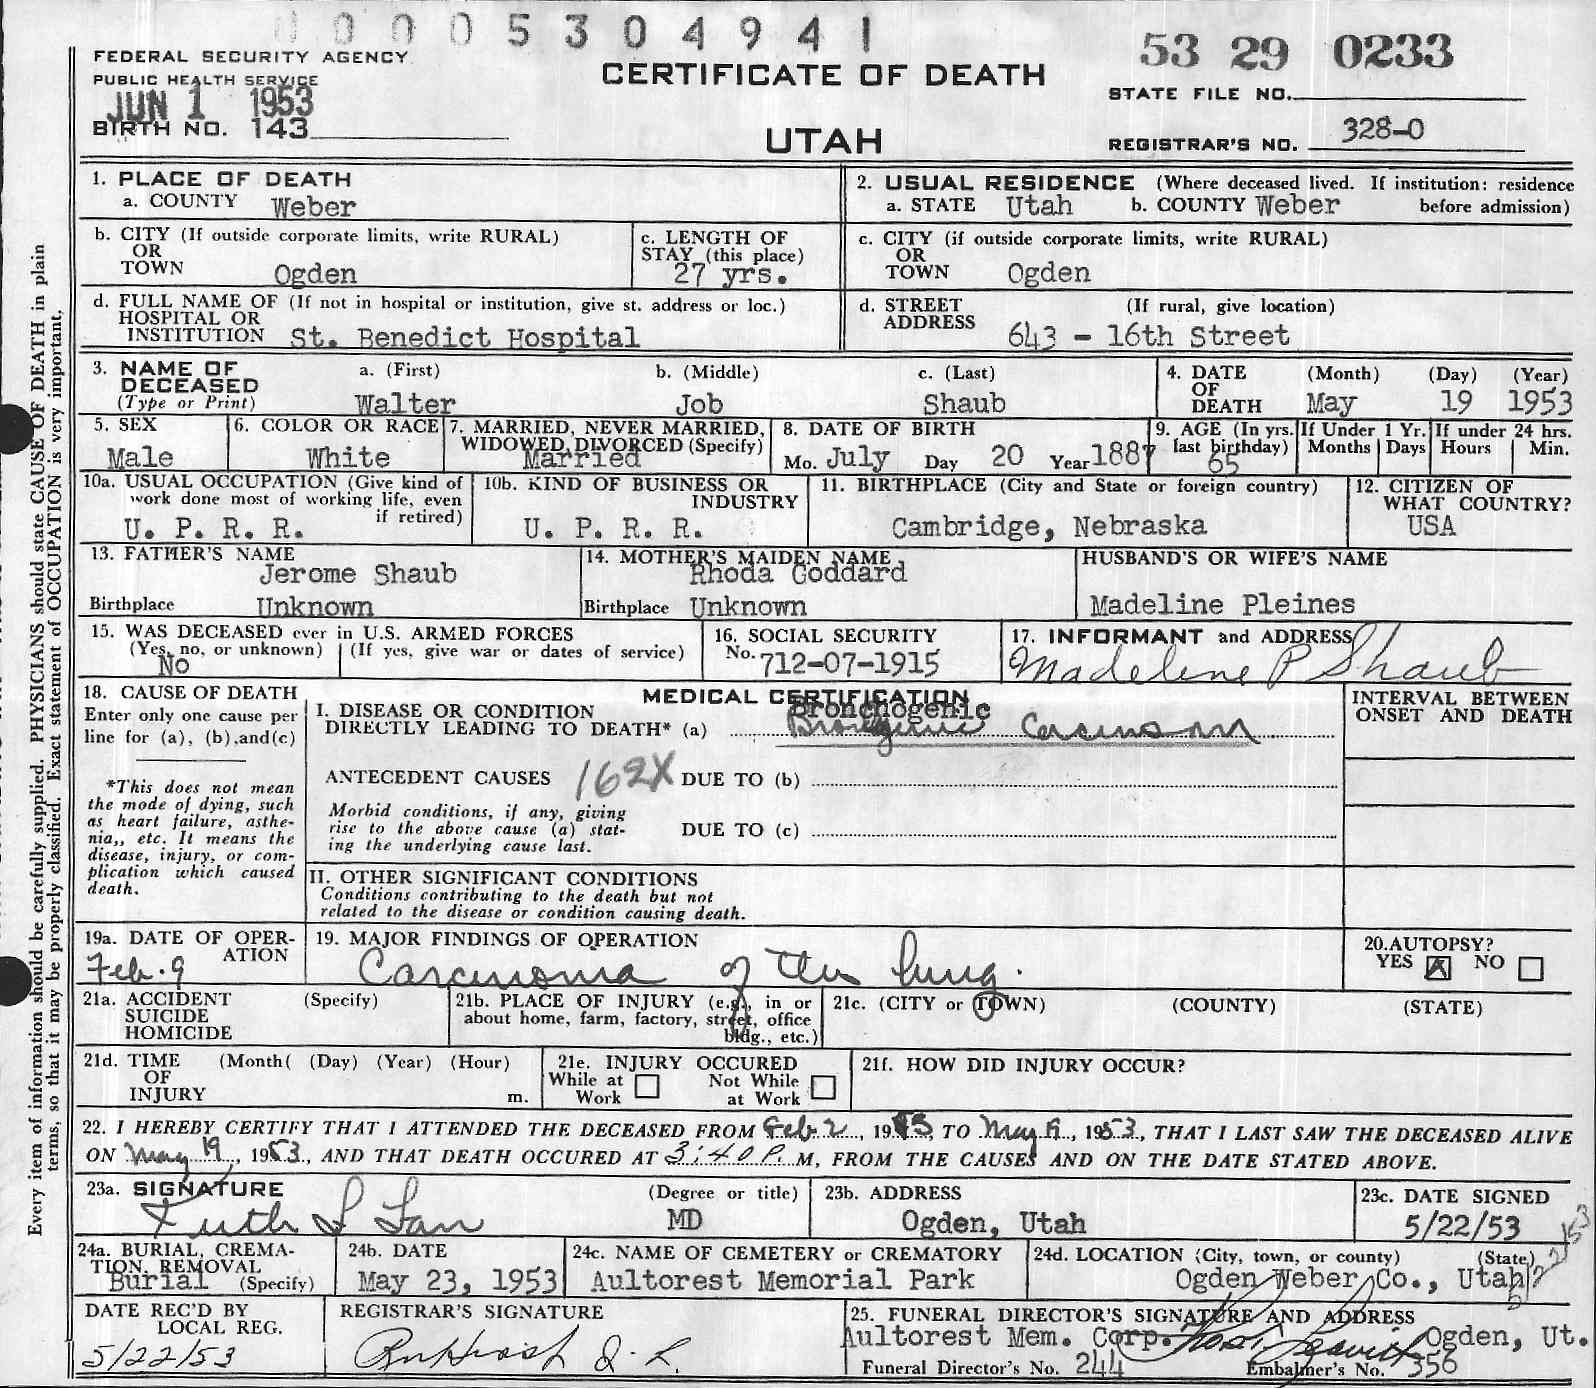 0 0 0 0 5 3 0 4 9 4 1
FEDERAL SECURITY AGENCY
PUBLIC HEALTH SERVICE
JUN 1 1953
BIRTH NO. 143
CERTIFICATE OF DEATH
UTAH
53 29 0233
STATE FILE NO.
REGISTRAR'S NO. 328-0
Every item of information should be carefully supplied. PHYSICIANS should state CAUSE OF DEATH in plain
terms, so that it may be properly classified. Exact statement of OCCUPATION is very important,
1. PLACE OF DEATH
a. COUNTY Weber
2. USUAL RESIDENCE (Where deceased lived. If institution: residence
a. STATE Utah b. COUNTY Weber before admission)
b. CITY (If outside corporate limits, write RURAL)
OR
TOWN Ogden
c. LENGTH OF
STAY (this place)
27 yrs.
c. CITY (if outside corporate limits, write RURAL)
OR
TOWN Ogden
d. FULL NAME OF (If not in hospital or institution, give st. address or loc.)
HOSPITAL OR
INSTITUTION St. Benedict Hospital
d. STREET (If rural, give location)
ADDRESS 643 - 16th Street
3. NAME OF a. (First) b. (Middle) c. (Last)
DECEASED
(Type or Print) Walter Job Shaub
4. DATE (Month) (Day) (Year)
OF
DEATH May 19 1953
5. SEX
Male
6. COLOR OR RACE
White
7. MARRIED, NEVER MARRIED,
WIDOWED, DIVORCED (Specify)
Married
8. DATE OF BIRTH
Mo. July Day 20 Year 1887
9. AGE (In yrs.
last birthday)
65
If Under 1 Yr.
Months Days
If under 24 hrs.
Hours Min.
10a. USUAL OCCUPATION (Give kind of
work done most of working life, even
if retired)
U. P. R. R.
10b. KIND OF BUSINESS OR
INDUSTRY
U. P. R. R.
11. BIRTHPLACE (City and State or foreign country)
Cambridge, Nebraska
12. CITIZEN OF
WHAT COUNTRY?
USA
13. FATHER'S NAME
Jerome Shaub
Birthplace Unknown
14. MOTHER'S MAIDEN NAME
Rhoda Goddard
Birthplace Unknown
HUSBAND'S OR WIFE'S NAME
Madeline Pleines
15. WAS DECEASED ever in U.S. ARMED FORCES
(Yes, no, or unknown) (If yes, give war or dates of service)
No
16. SOCIAL SECURITY
No. 712-07-1915
17. INFORMANT and ADDRESS
Madelene P Shaub
18. CAUSE OF DEATH
Enter only one cause per
line for (a), (b),and(c)
*This does not mean
the mode of dying, such
as heart failure, asthe-
nia,, etc. It means the
disease, injury, or com-
plication which caused
death.
MEDICAL CERTIFICATION
Bronchogenic
I. DISEASE OR CONDITION
DIRECTLY LEADING TO DEATH* (a) Carcinoma
ANTECEDENT CAUSES 162X DUE TO (b)
Morbid conditions, if any, giving
rise to the above cause (a) stat-
ing the underlying cause last.
DUE TO (c)
II. OTHER SIGNIFICANT CONDITIONS
Conditions contributing to the death but not
related to the disease or condition causing death.
INTERVAL BETWEEN
ONSET AND DEATH
19a. DATE OF OPER-
ATION
Feb. 9
19. MAJOR FINDINGS OF OPERATION
Carcinoma of the lung.
20. AUTOPSY?
YES X NO
21a. ACCIDENT (Specify)
SUICIDE
HOMICIDE
21b. PLACE OF INJURY (e.g., in or
about home, farm, factory, street, office
bldg., etc.)
21c. (CITY or TOWN) (COUNTY) (STATE)
21d. TIME (Month( (Day) (Year) (Hour)
OF
INJURY m.
21e. INJURY OCCURED
While at Not While
Work at Work
21f. HOW DID INJURY OCCUR?
22. I HEREBY CERTIFY THAT I ATTENDED THE DECEASED FROM Feb 2, 1953, TO May 19, 1953, THAT I LAST SAW THE DECEASED ALIVE
ON May 19, 1953, AND THAT DEATH OCCURED AT 3:40 P. M, FROM THE CAUSES AND ON THE DATE STATED ABOVE.
23a. SIGNATURE (Degree or title)
MD
23b. ADDRESS
Ogden, Utah
23c. DATE SIGNED
5/22/53
24a. BURIAL, CREMA-
TION, REMOVAL
Burial (Specify)
24b. DATE
May 23, 1953
24c. NAME OF CEMETERY or CREMATORY
Aultorest Memorial Park
24d. LOCATION (City, town, or county) (State)
Ogden Weber Co., Utah
DATE REC'D BY
LOCAL REG.
5/22/53
REGISTRAR'S SIGNATURE
25. FUNERAL DIRECTOR'S SIGNATURE AND ADDRESS
Aultorest Mem. Corp. Ogden, Ut.
Funeral Director's No. 244 Embalmer's No. 356